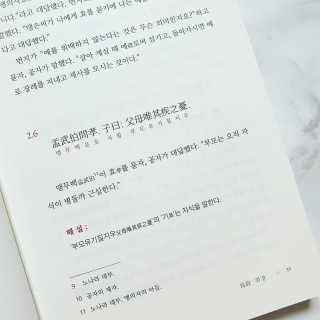 니다."라고 대답했다. 번지가
했다. "맹손씨가 나에게 효를 묻기에 나는
다고 대답했다."
번지가 "예를 위배하지 않는다는 것은 무슨 의미인지요?"하고
묻자, 공자가 말했다. "살아 계실 때 예禮로써 섬기고, 돌아가시면 예
로 장례를 지내고 제사를 모시는 것이다."
2.6
孟武伯問孝. 子曰: 父母唯其疾之憂
맹무백문효 자왈 부모유기질지우
맹무백孟武伯¹¹이 효孝를 묻자, 공자가 대답했다. "부모는 오직 자
식이 병들까 근심한다."
해설:
'부모유기질지우父母唯其疾之憂'의 '기其'는 자식을 말한다.
9 노나라 대부.
10 공자의 제자.
11 노나라 대부. 맹의자의 아들.